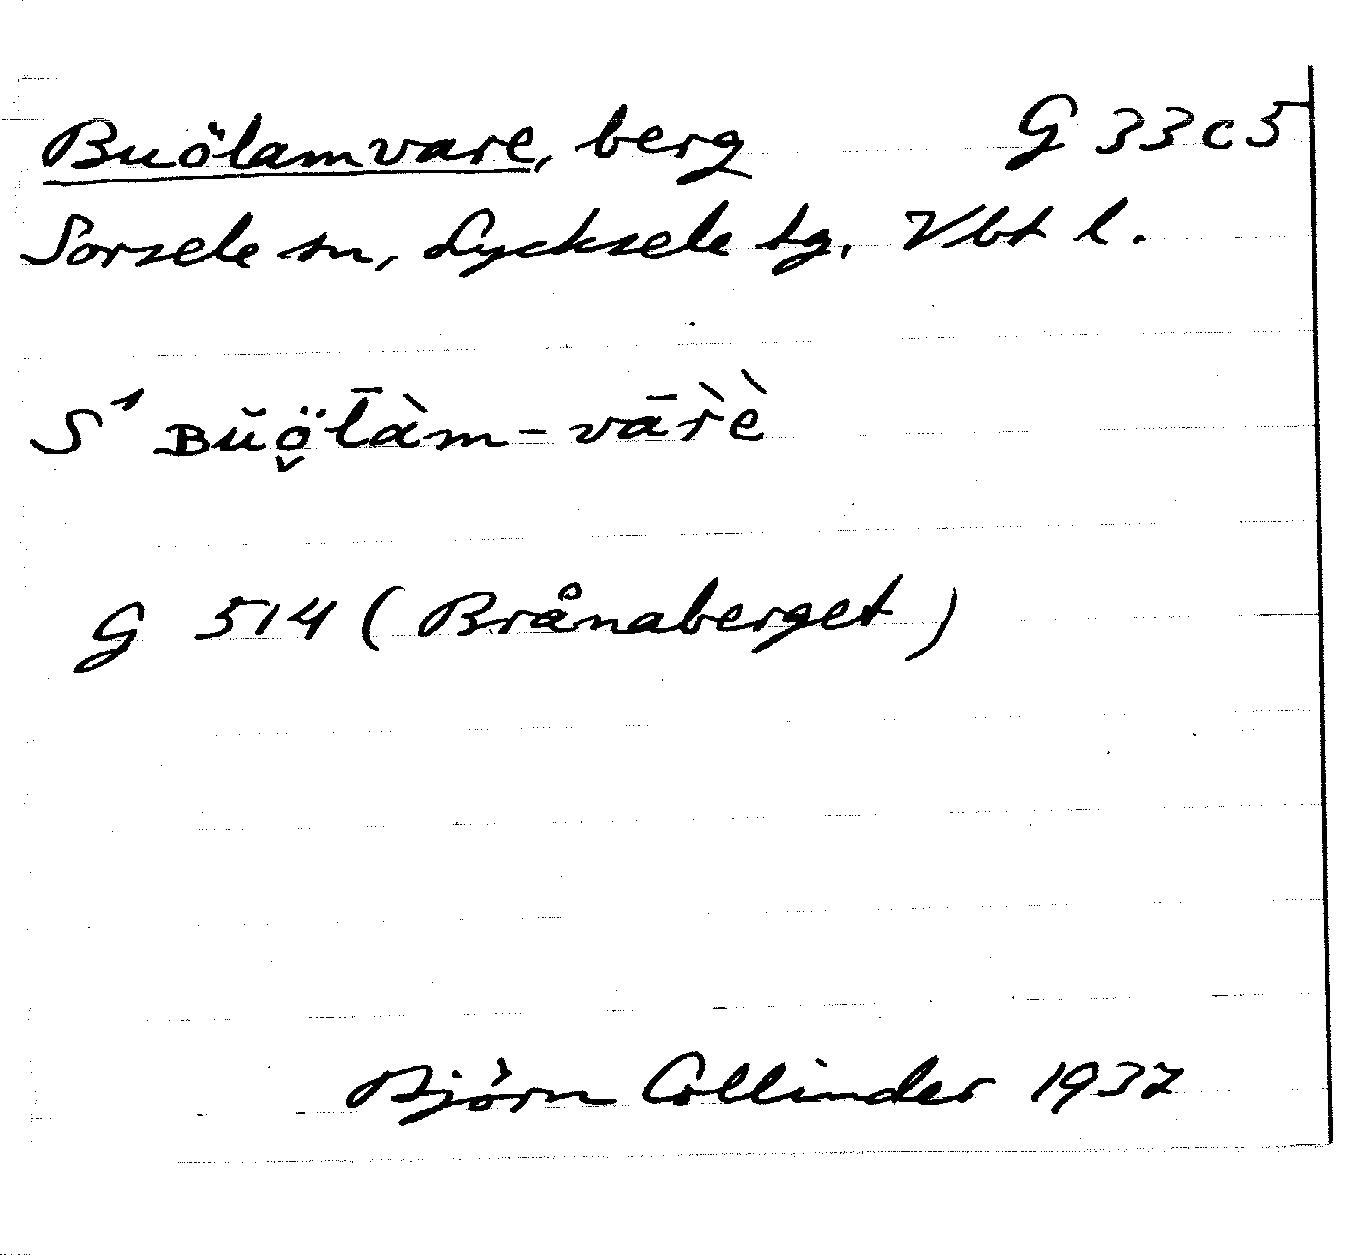 Buölamvare, berg G 33 c 5
Sorsele sn, Lycksele tg, Vbt l.
S¹ Bŭö̬l̄àm-vār̀è
G 514 (Brånaberget)
Björn Collinder 1937